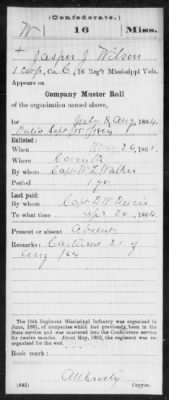 (Confederate.)
W 16 Miss.
Jasper J Wilson
1 Corp, Co. C, 16 Reg't Mississippi Vols.
Appears on
Company Muster Roll
of the organization named above,
for July & Aug, 1864.
Enlisted:
When May 26, 1861.
Where Corinth
By whom Capt Walker
Period 1 yr
Last paid:
By whom Capt
To what time Apr 30, 1864.
Present or absent Absent
Remarks: Captured 21 of
Aug /64
The 16th Regiment Mississippi Infantry was organized in
June, 1861, of companies which had previously been in the
State service and was mustered into the Confederate service
for twelve months. About May, 1862, the regiment was re-
organized for the war.
Book mark:
(642) Copyist.